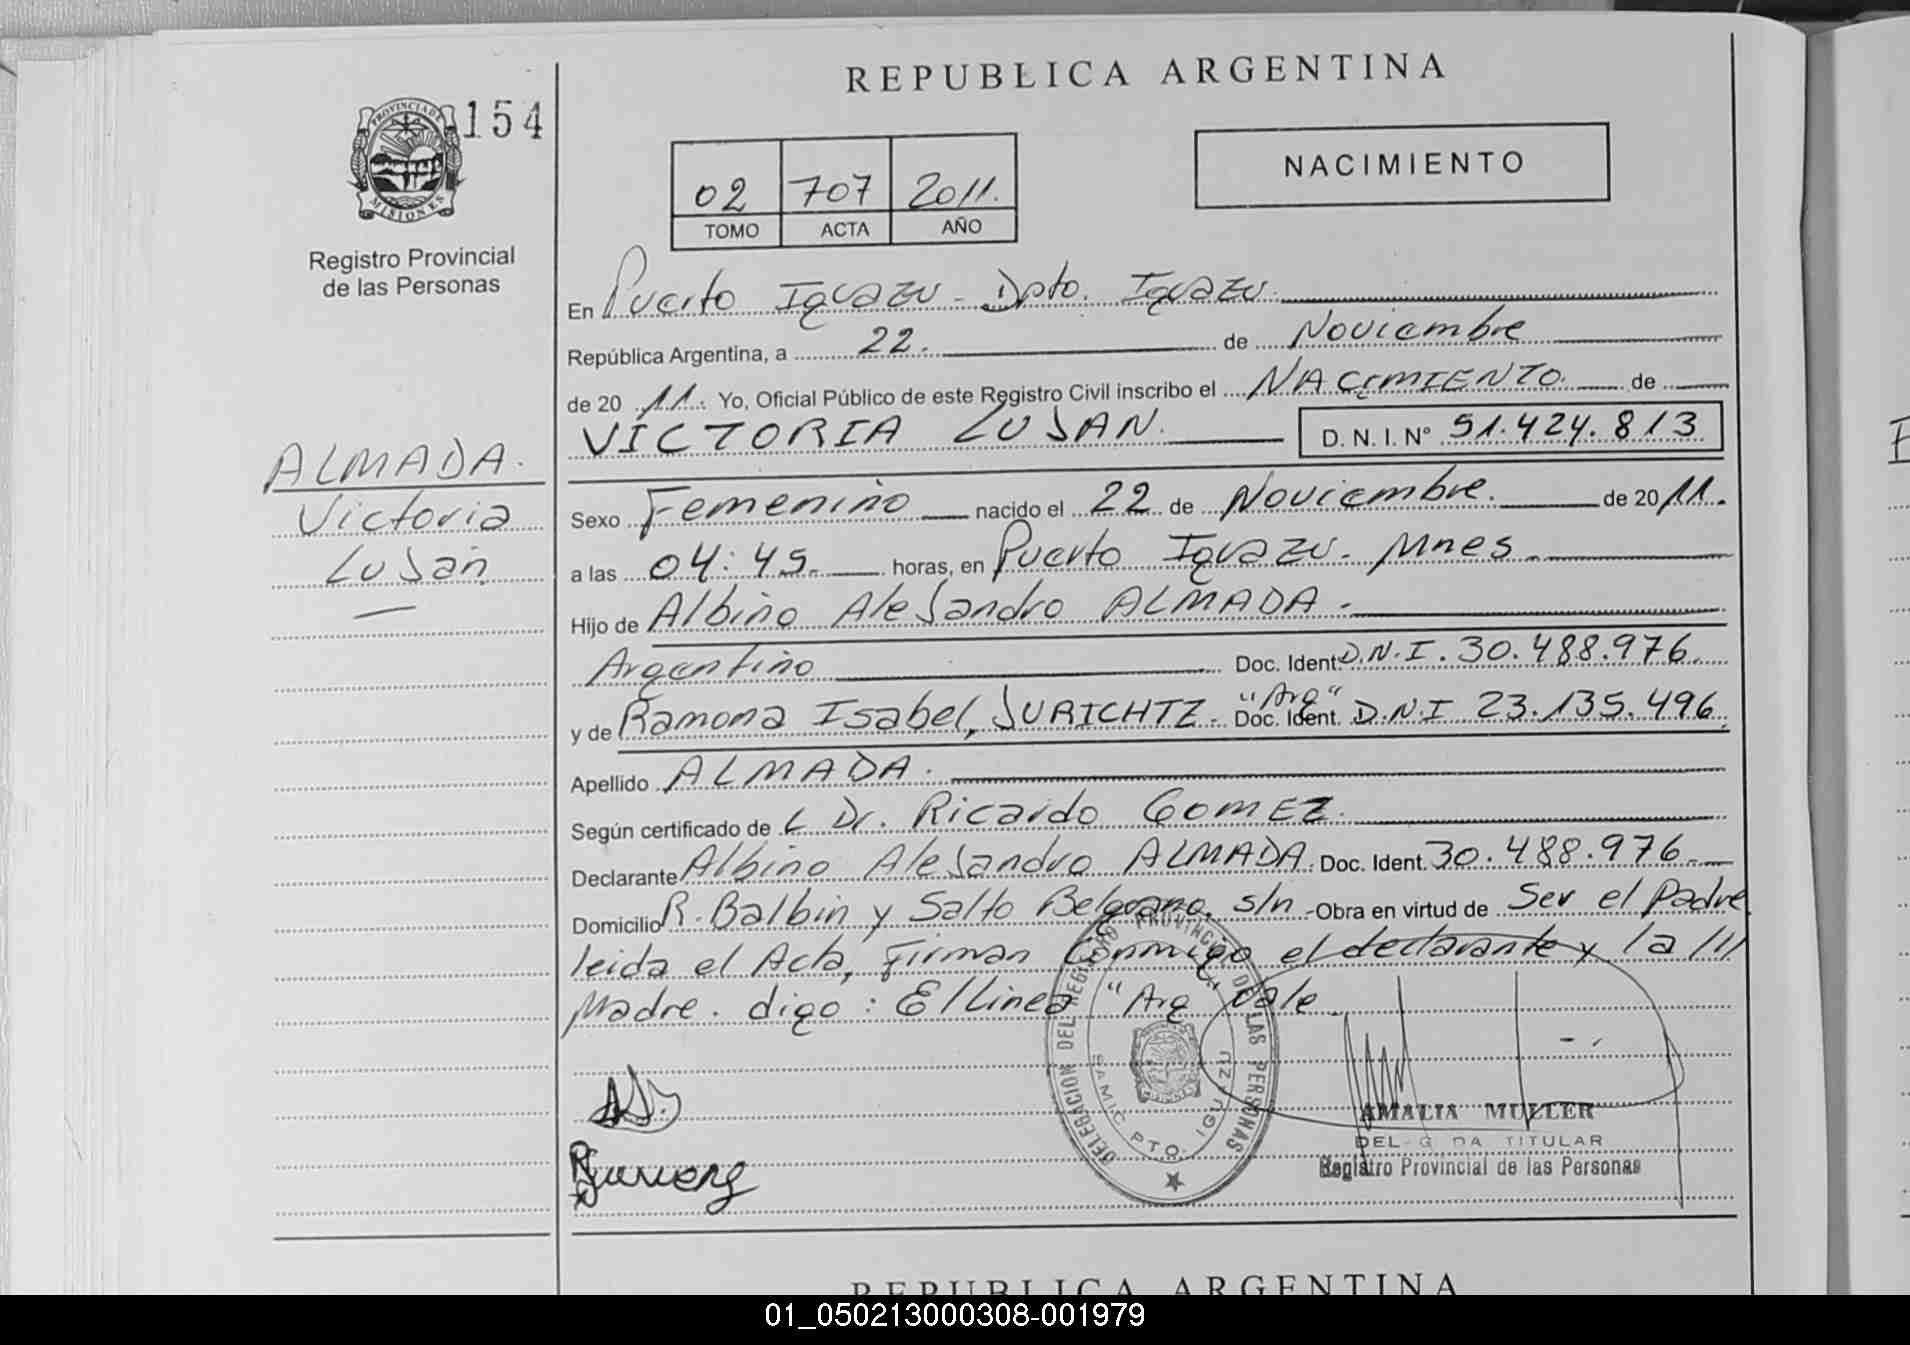 REPUBLICA ARGENTINA
PROVINCIA DE MISIONES
154
Registro Provincial
de las Personas
NACIMIENTO
02 707 2011.
TOMO ACTA AÑO
En Puerto Iguazu - Dpto. Iguazu.
República Argentina, a 22. de Noviembre
de 20 11. Yo, Oficial Público de este Registro Civil inscribo el NACIMIENTO de
VICTORIA LUJAN. D. N. I. Nº 51.424.813
ALMADA.
Victoria
Lujan
Sexo Femenino nacido el 22 de Noviembre. de 20 11.
a las 04:45. horas, en Puerto Iguazu. Mnes.
Hijo de Albino Alejandro ALMADA.
Argentino Doc. Ident D.N.I. 30.488.976.
"Arg"
y de Ramona Isabel, JURICHTZ. Doc. Ident. D.N.I 23.135.496.
Apellido ALMADA.
Según certificado de L Dr. Ricardo GOMEZ.
Declarante Albino Alejandro ALMADA. Doc. Ident. 30.488.976.
Domicilio R. Balbin y Salto Belgrano. s/n - Obra en virtud de Ser el Padre
leida el Acta, Firman Conmigo el declarante y la ///
Madre. digo: E/Linea "Arg" Vale.
DELEGACION DEL REGISTRO PROVINCIAL DE LAS PERSONAS
SAMIC PTO. IGUAZU
MISIONES
AMALIA MULLER
DEL G DA TITULAR
Registro Provincial de las Personas
REPUBLICA ARGENTINA
01_050213000308-001979